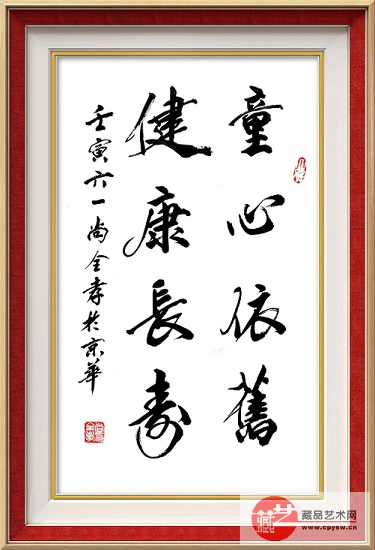 童心依舊
健康長壽
壬寅六一尚全孝於京華
藏品艺术网
www.cpysw.cn